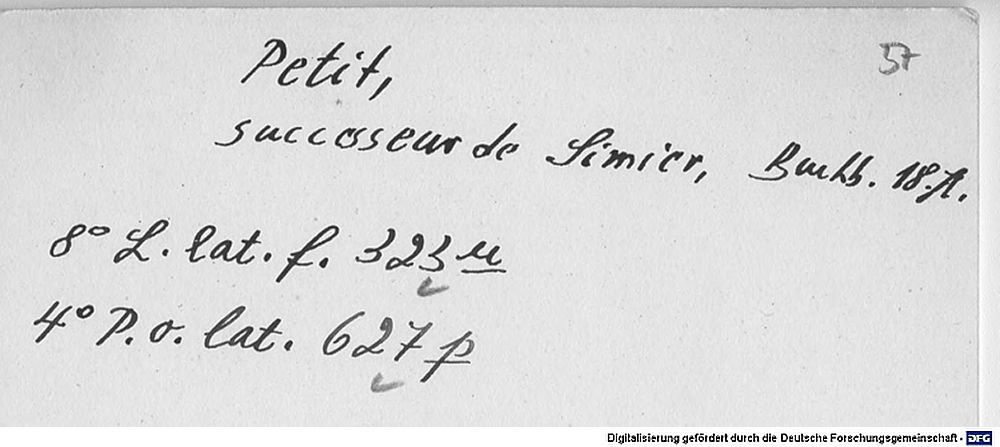 57
Petit,
successeur de Simier, Buchb. 18. A.
8° L. lat. f. 323 u
4° P. o. lat. 627 p
Digitalisierung gefördert durch die Deutsche Forschungsgemeinschaft - DFG